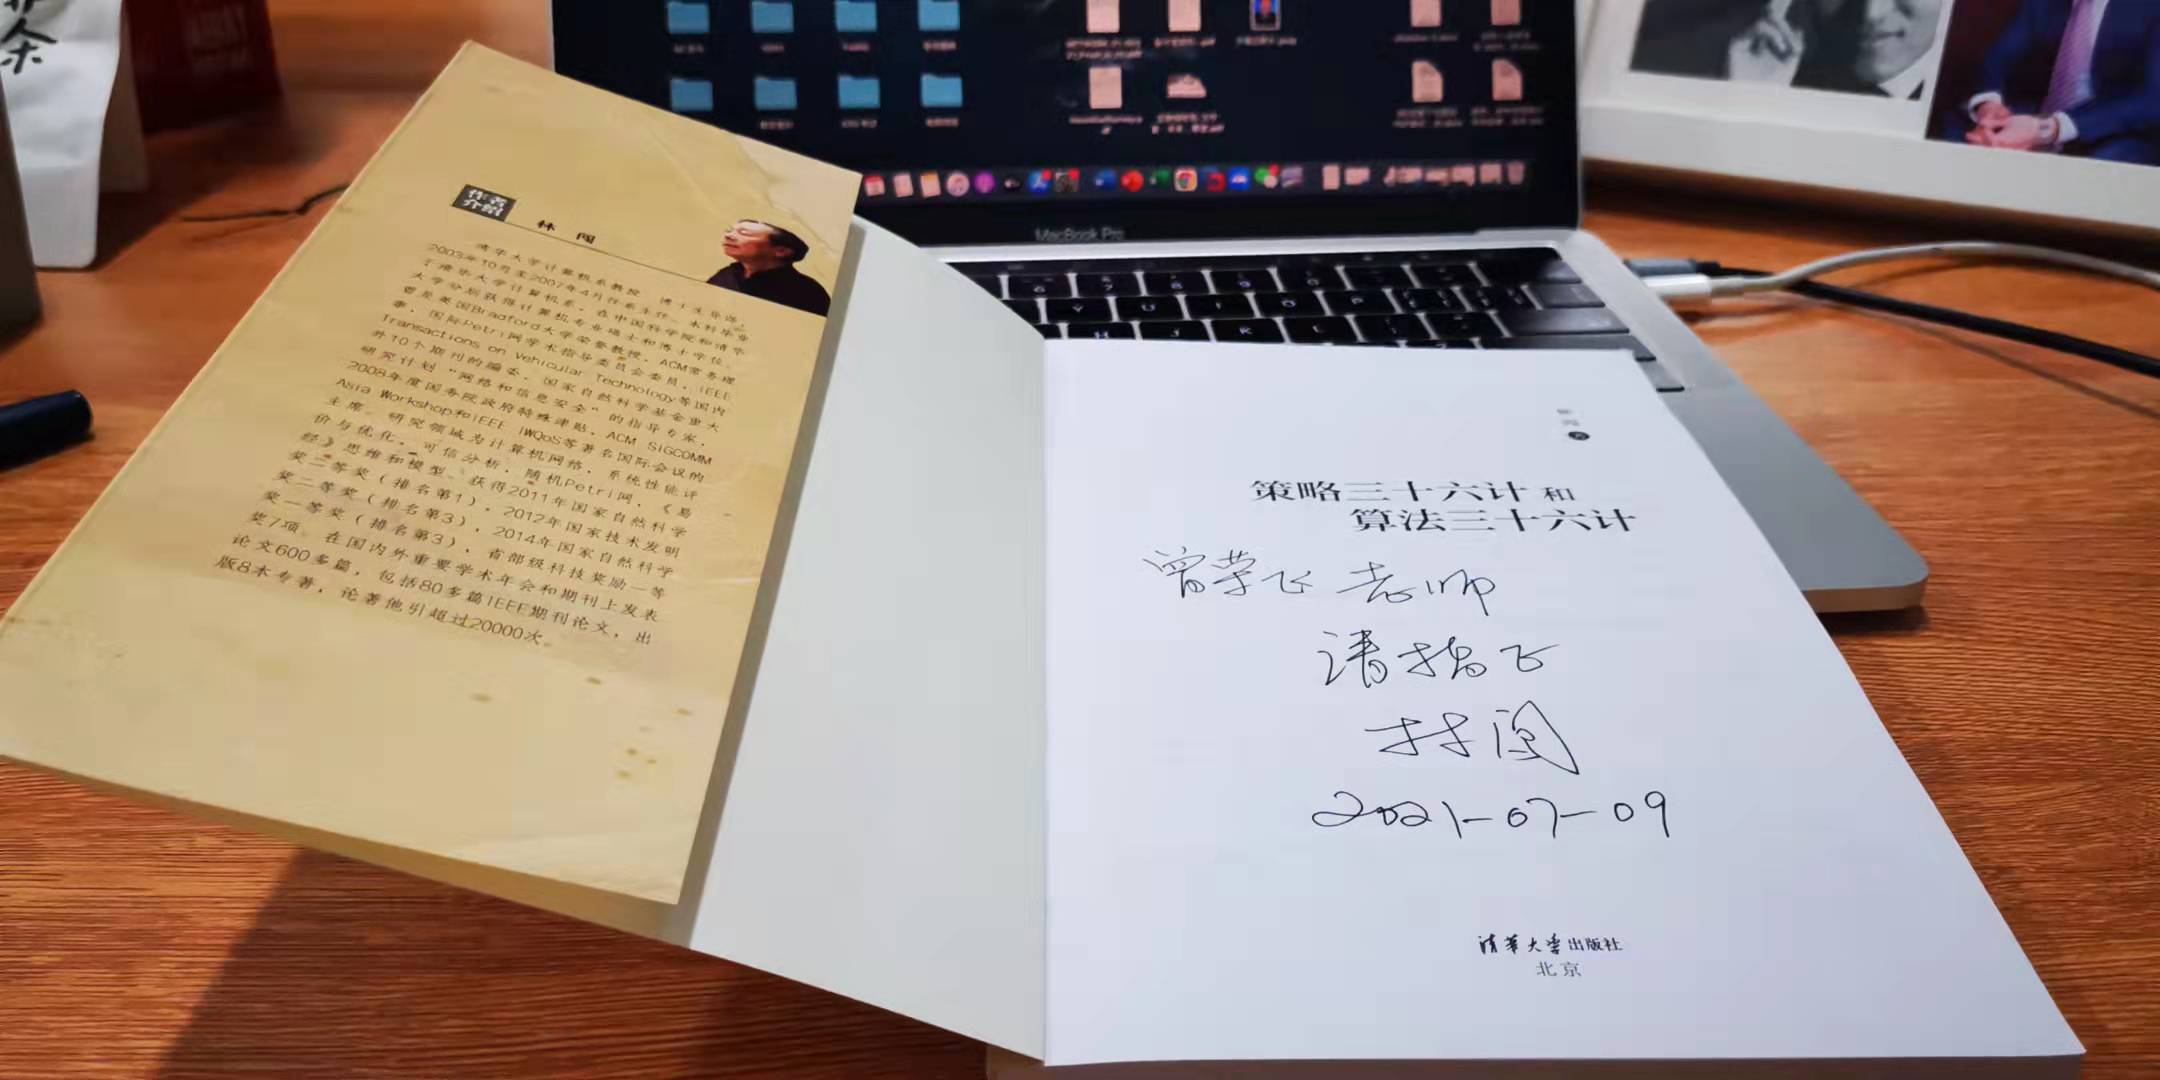 余
作者
介绍
林 闯
清华大学计算机系教授、博士生导师。
2003年10月至2007年4月任系主任。本科毕业
于清华大学计算机系，在中国科学院和清华
大学分别获得计算机专业硕士和博士学位。
要是英国Bradford大学荣誉教授，ACM常务理
事，国际Petri网学术指导委员会委员，IEEE
Transactions on Vehicular Technology等国内
外10个期刊的编委，国家自然科学基金重大
研究计划“网络和信息安全”的指导专家，
2008年度国务院政府特殊津贴，ACM SIGCOMM
Asia Workshop和IEEE IWQoS等著名国际会议的
主席。研究领域为计算机网络，系统性能评
价与优化，可信分析，随机Petri网，《易
经》思维和模型。获得2011年国家自然科学
奖二等奖（排名第1），2012年国家技术发明
奖二等奖（排名第3），2014年国家自然科学
奖一等奖（排名第3），省部级科技奖励一等
奖7项。在国内外重要学术年会和期刊上发表
论文600多篇，包括80多篇IEEE期刊论文，出
版8本专著，论著他引超过20000次。
MacBook Pro
著
策略三十六计和
算法三十六计
曾荣飞老师
请指正
林闯
2021-07-09
清华大学出版社
北京